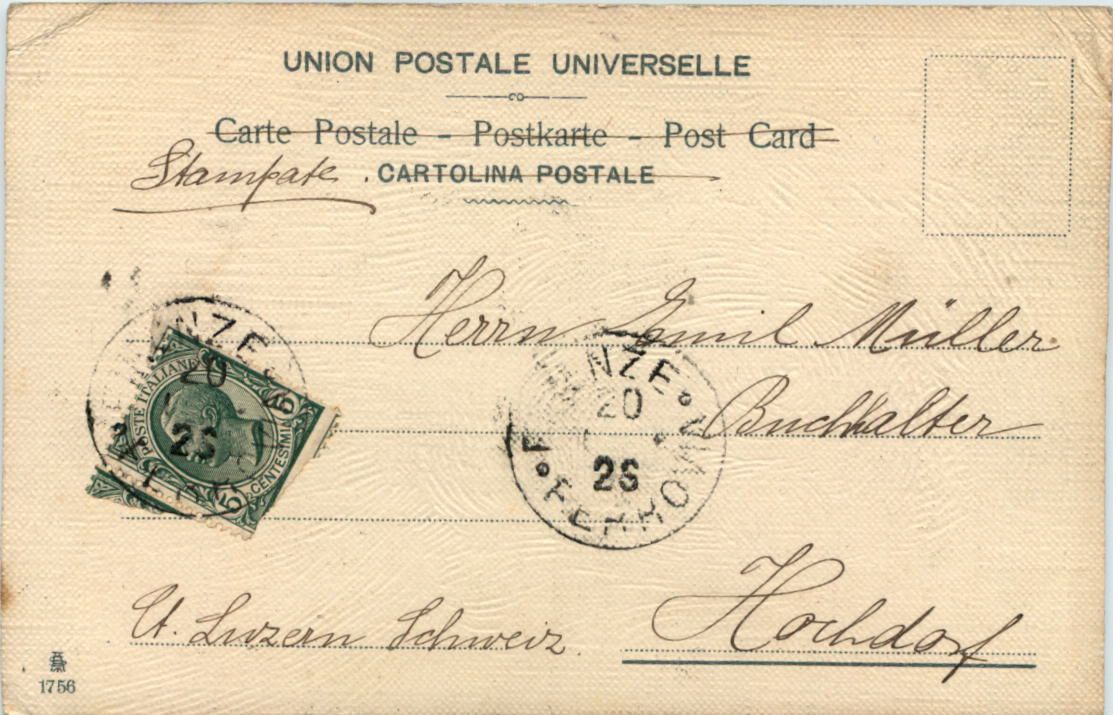 UNION POSTALE UNIVERSELLE
Carte Postale - Postkarte - Post Card
Stampate . CARTOLINA POSTALE
Herrn Emil Müller.
Buchhalter
Hochdorf
Ct. Luzern Schweiz.
POSTE ITALIANE
CENTESIMI
5
20
26
20
26
FERROVIA
1756